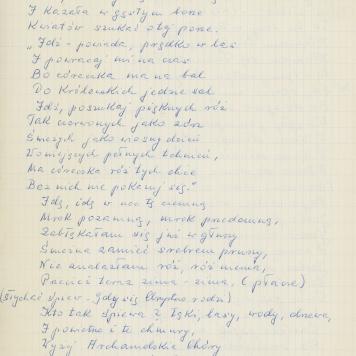 I kazała w gęstym borze
Kwiatów szukać o tej porze.
„Idź - powiada, prędko w las
I powracaj mi na czas
Bo córeczka ma na bal
Do Królewskich jedzie sal
Idź, poszukaj pięknych róż
Tak czerwonych jako zórz
Świeżych jako wiosny dzień
pełnych tchnień,
Ma córeczka róż tych chce
Bez nich nie pokazuj się."
Idę, idę w noc tę ciemną
Mrok poza mną, mrok przede mną,
Zabłąkałam się już w głuszy
Śnieżna zamieć srebrem prószy,
Nie znalazłam róż, róż niema,
Przecież teraz zima - zima. (płacze)
(Słychać śpiew - Gdy się Chrystus rodzi)
Kto tak śpiewa? Łąki, lasy, wody, drzewa,
I powietrze i te chmury,
Czy Archanielskie Chóry